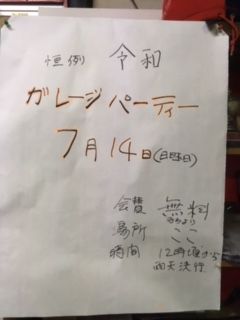 恒例 令和
ガレージパーティー
7月14日(日曜日)
会費 無料
場所 ここ
時間 12時頃から
雨天決行